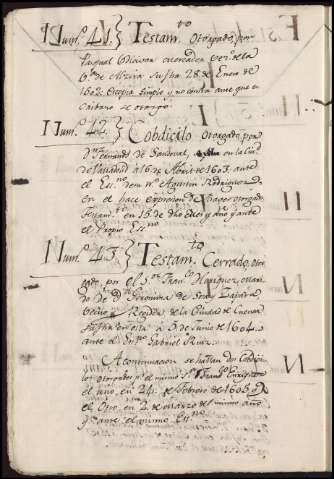 Num.º 41. } Testam.to Otorgado, por
Pasqual
V.ª de su fha 28. de Enero de
1602. Copia simple y no consta ante que es-
cribano se otorgó.
Num.º 42. } Cobdicilo Otorgado, por
Dⁿ Fernando de Sandoval, en la Ciu.d
de Valladolid à 16 de Abril de 1603. ante
el Ess.no de m.º Agustin Rodriguez
en el hace expresion de haver otorgado
Testam.to en 15 de dho mes y año y ante
el Propio Ess.no
Num.º 43. } Testam.to Cerrado, otor-
gado, por el S.or Fran.co Enriquez, mari-
do de D.ª de
Vecino y Regidor de la Ciudad de Cuenca
su fha en ella à 5 de Junio de 1604.
ante el Ess.no Gabriel Ruiz.
A continuacion se hallan dos Cobdici-
los otorgados p.r el mismo S.r Fran.co Enriquez
el uno, en 24. de Febrero de 1605, y
el Otro, en 2 de Marzo del mismo año
y ante el mismo Ess.no